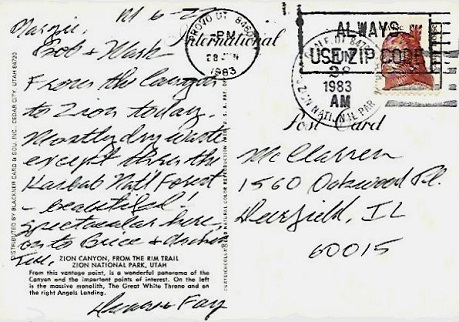 Margie,
Bob & Mark
From the Canyon
to Zion today.
Mostly dry waste
except thru the
Nat'l Forest
- beautiful &
spectacular here,
on to Bryce &
ZION CANYON, FROM THE RIM TRAIL
ZION NATIONAL PARK, UTAH
From this vantage point, is a wonderful panorama of the
Canyon and the important points of interest. On the left
is the massive monolith, The Great White Throne and on
the right Angels Landing.
Fay
DISTRIBUTED BY BLACKNER CARD & SOU. INC., CEDAR CITY, UTAH 84720
International
PROVO UT
PM
1983
ALWAYS
USE ZIP CODE
28
1983
AM
ZION NAT'L PAR
Post Card
McClarren
1560 Oakwood Pl.
Deerfield, IL
60015